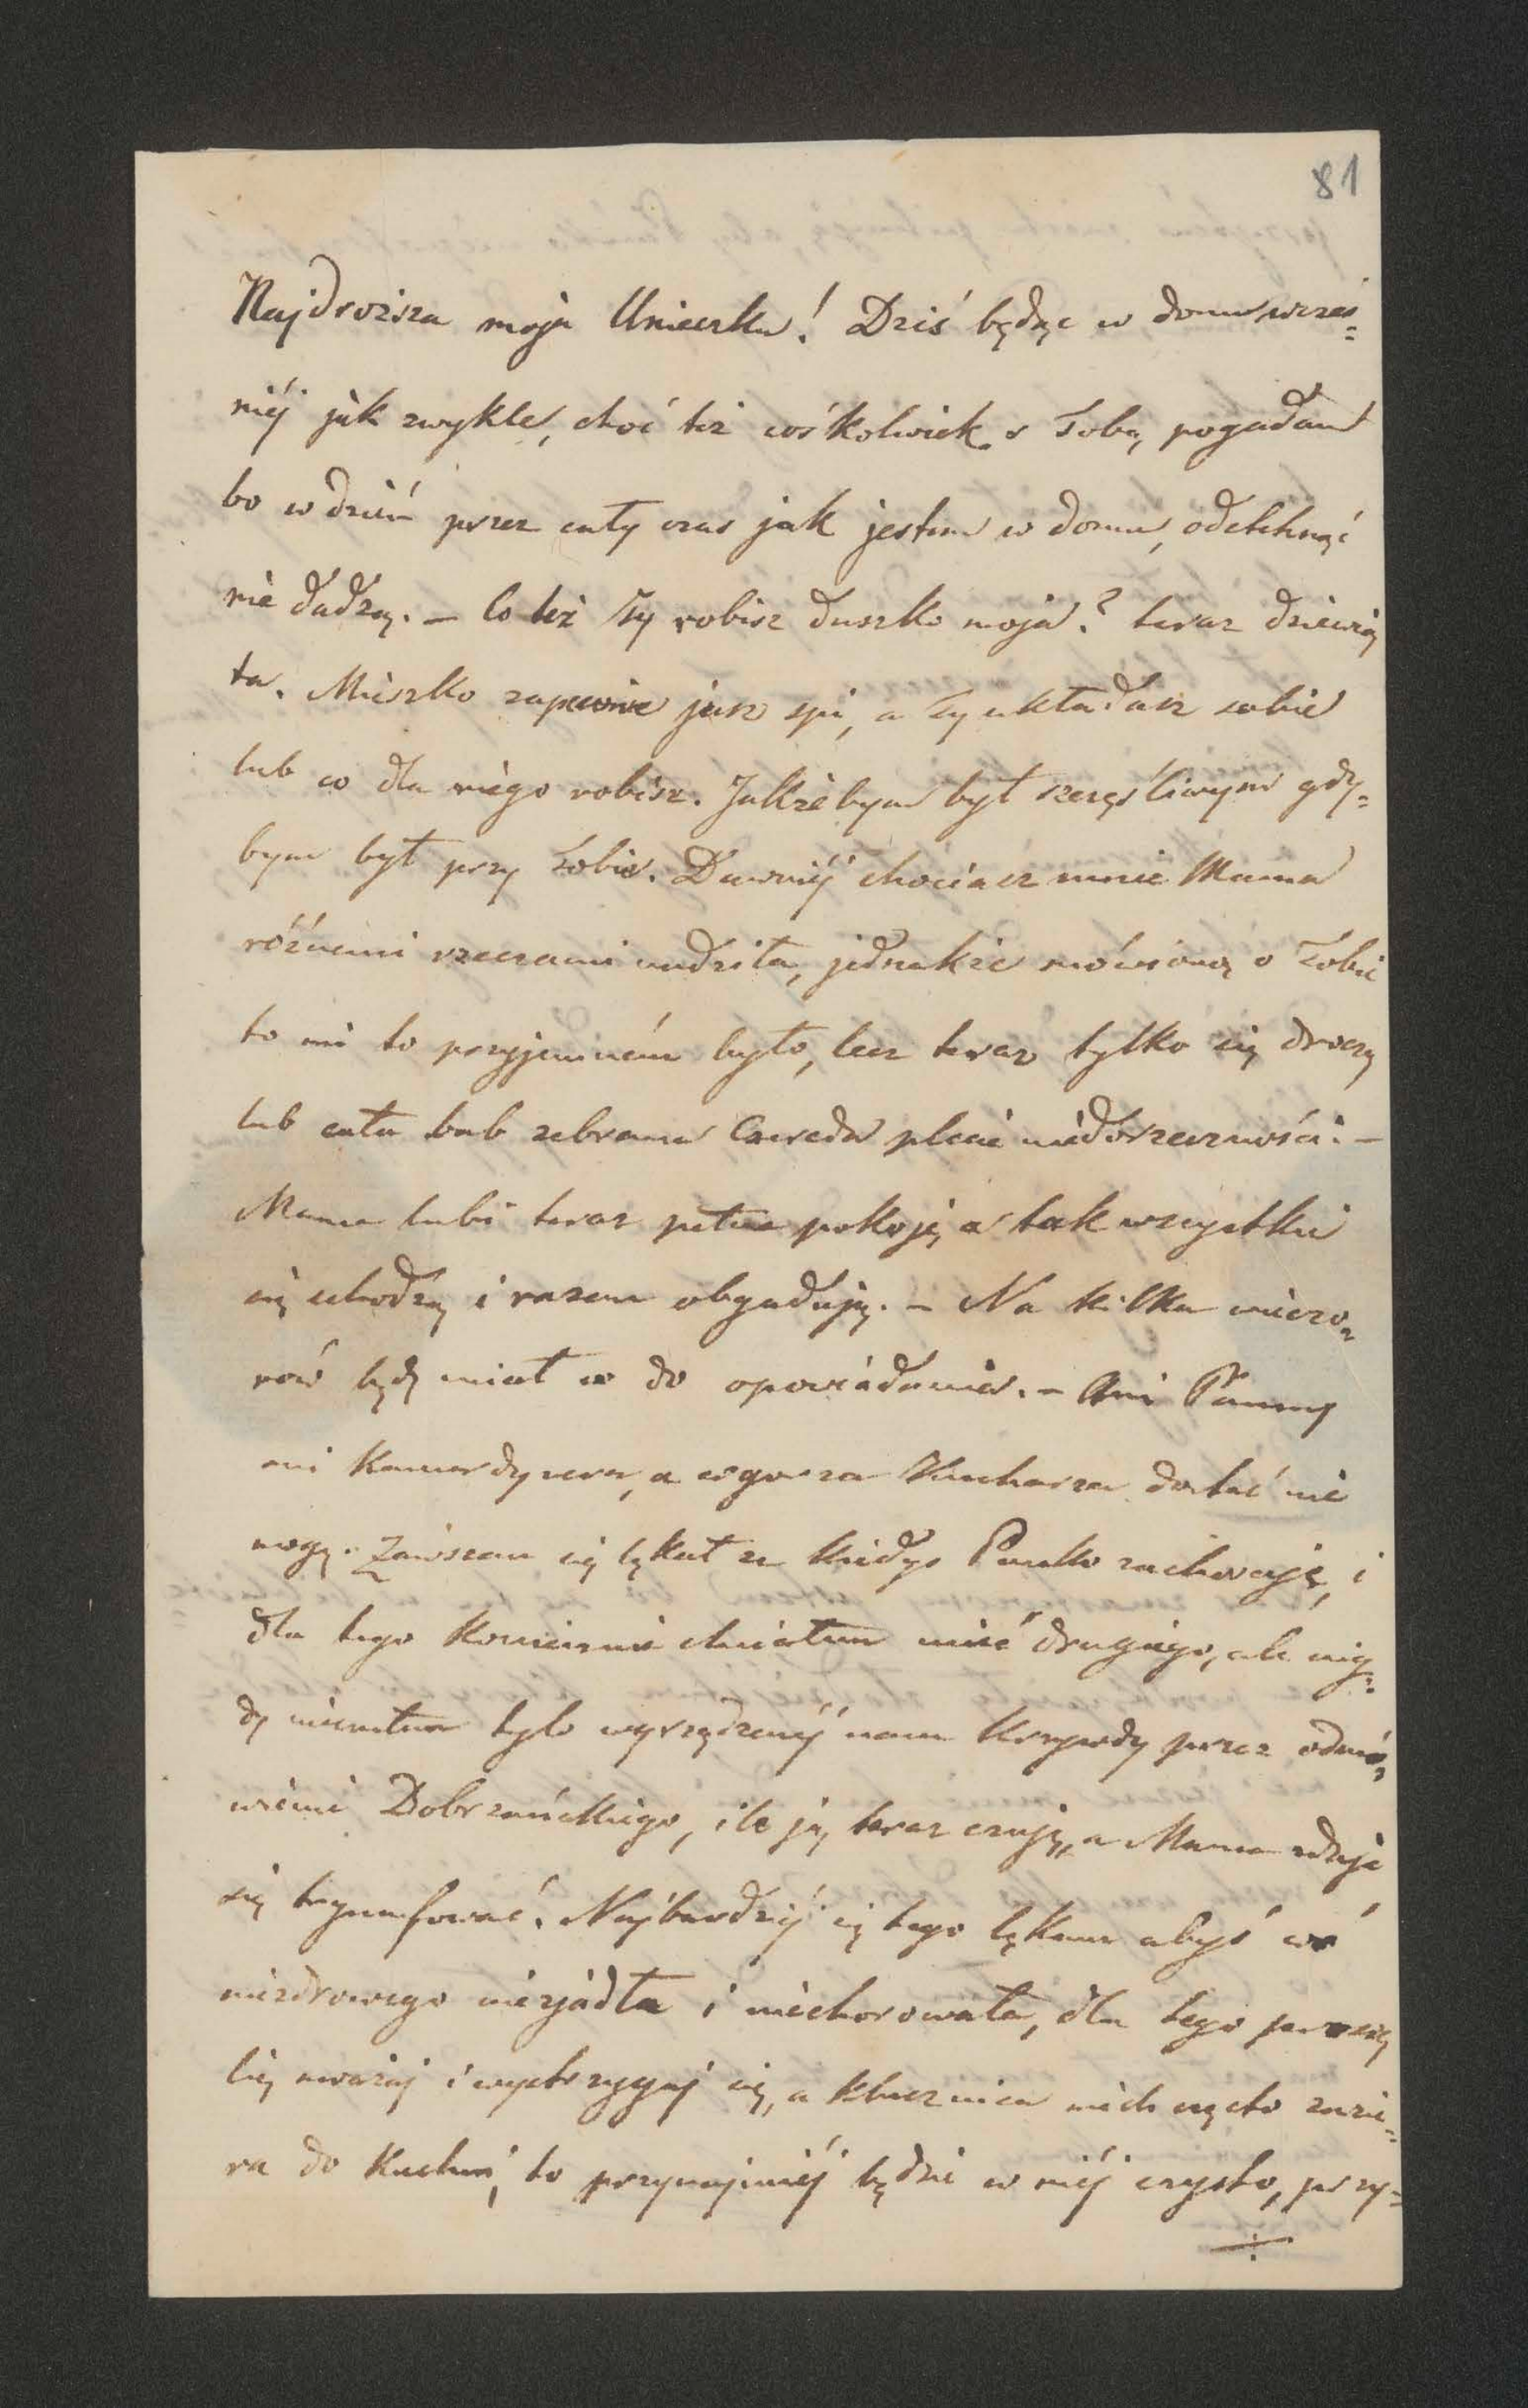 81
Najdroższa moja Unieczku! Dziś będąc w domu wcześ=
niéj jak zwykle, choć też cośkolwiek s Tobą pogadam
bo w dzień przez cały czas jak jestem w domu, odetchnąć
nie dadzą. – Co też Ty robisz duszko moja? teraz dziewią
ta. Mieszko zapewne już spi, a Ty układasz sobie
lub co dla niego robisz. Jakżebym był szczęśliwym gdy=
bym był przy Tobie. Dawniéj chociaż mnie Mama
róźnemi rzeczami nudziła, jednakże mówiono o Tobie
to mi to przyjemném było, lecz teraz tylko się droczą
lub cała bab zebrana Czereda plecie niedorzeczności. –
Mama lubi teraz pełne pokoje, a tak wszystkie
się schodzą i razem obgadują. – Na kilka wieczo=
rów będę miał co do opowiadania. – Ani Panny
ani Kamerdynera, a co gorsza Kucharza dostać nie
mogę. Zawszem się lękał że kiedyś Pawło zachoruje, i
dla tego koniecznie chciałem mieć drugiego, ale nig=
dy nieczułem tyle wyrządzonéj nam krzywdy przez odmó=
wienie Dobrzańskiego, ile ją teraz czuję, a Mama zdaje
się tryumfować. Najbardziéj się tego lękam abyś co
niezdrowego niezjadła i niechorowała, dla tego proszę
Cię uważaj i wystrzygaj się, a klucznica niech często zazie=
ra do Kuchni, to przynajmniéj będzie w niéj czysto, przy=